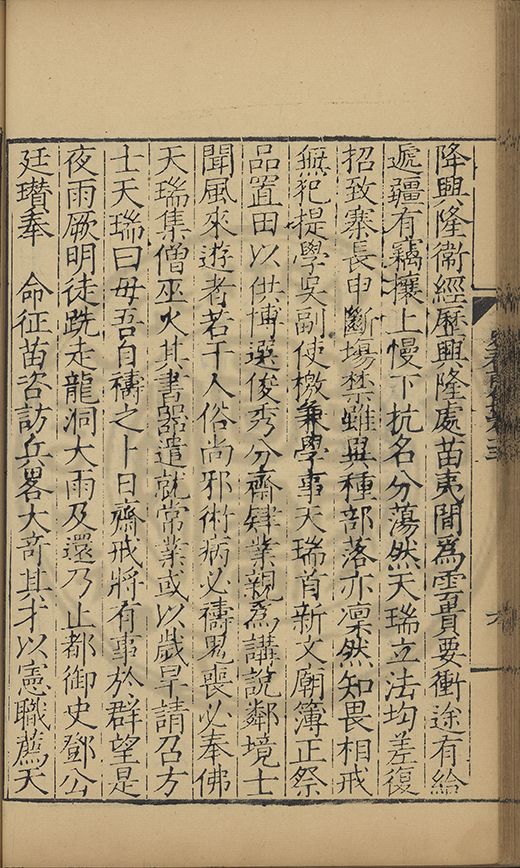 降興隆衞經歷興隆處苗夷間為雲貴要衝途有給
遞疆有竊攘上慢下抗名分蕩然天瑞立法均差復
招致寨長申斷塲禁雖異種部落亦凜然知畏相戒
無犯提學吳副使檄兼學事天瑞首新文廟簿正祭
品置田以供博選俊秀分齋肄業親為講說鄰境士
聞風來遊者若干人俗尚邪術病必禱鬼喪必奉佛
天瑞集僧巫火其書器遣就常業或以歲旱請召方
士天瑞曰毋吾自禱之卜日齋戒將有事於群望是
夜雨厥明徒跣走龍洞大雨及還乃止都御史鄧公
廷瓚奉　命征苗咨訪兵畧大奇其才以憲職薦天